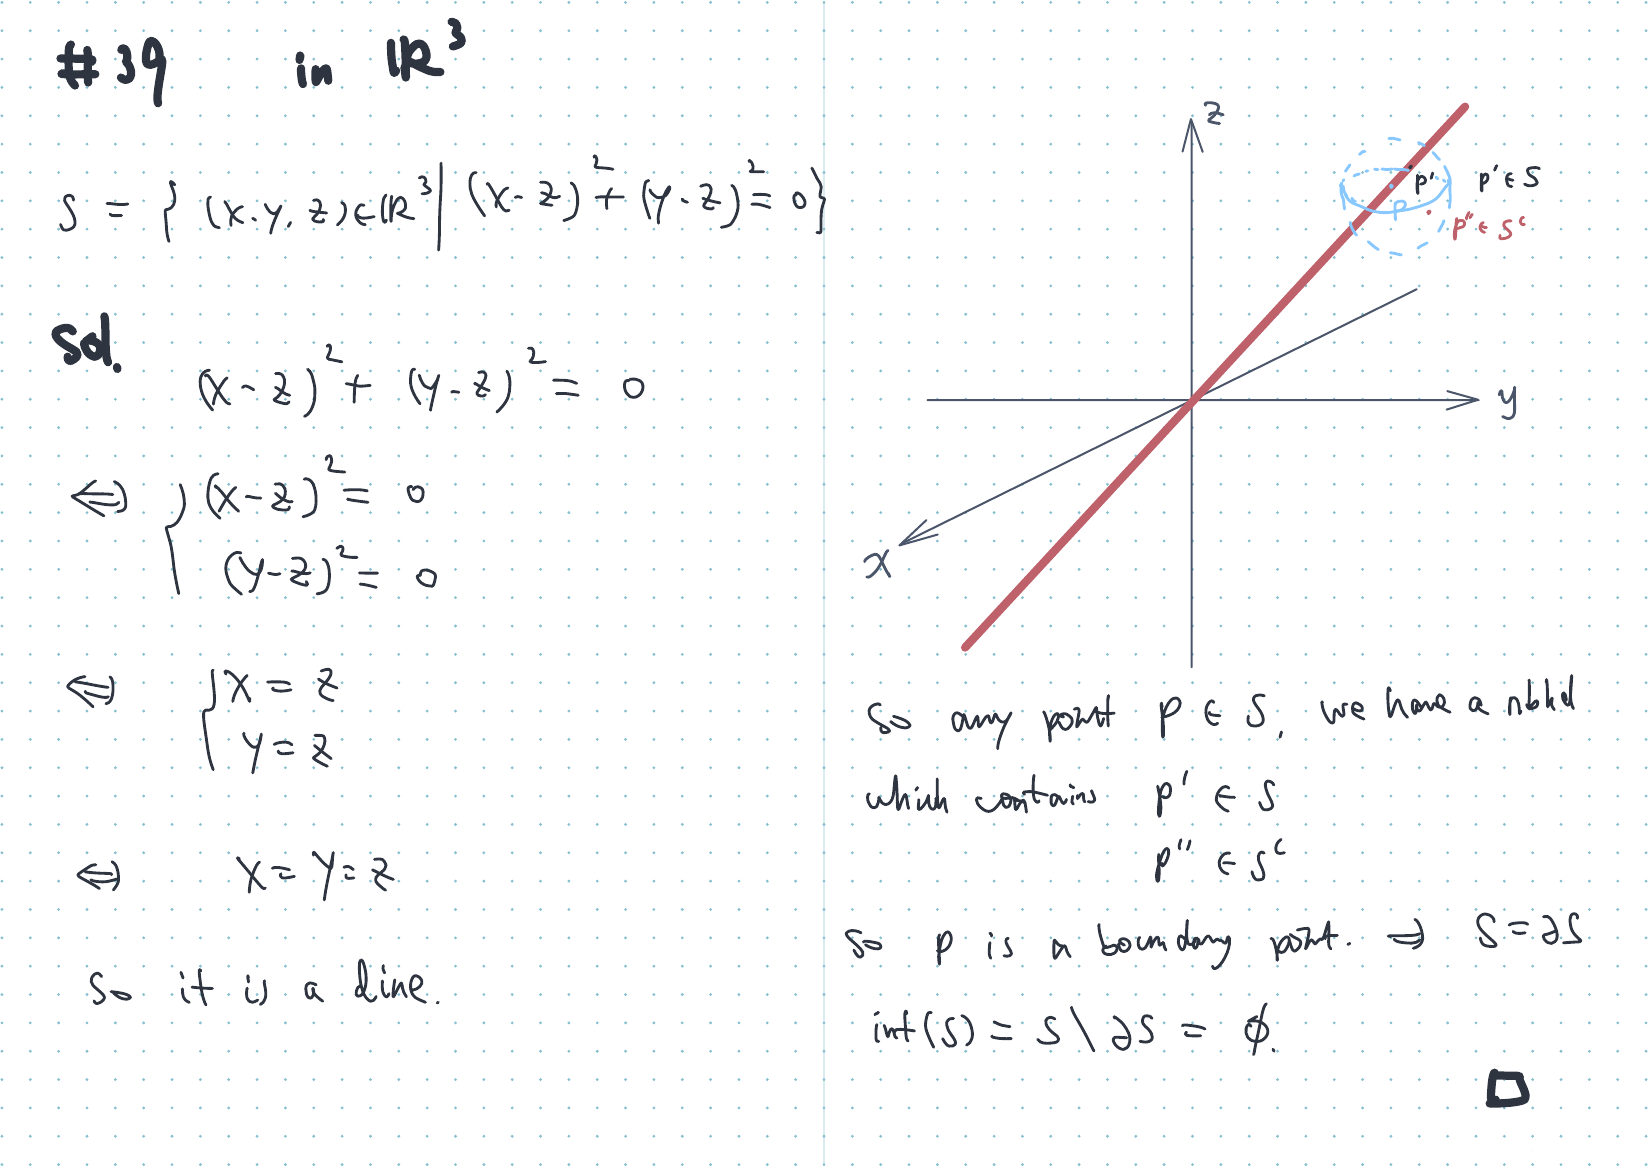 #39 in ℝ³
S = { (x.y, z) ∈ ℝ³ | (x-z)² + (y-z)² = 0 }
Sol.
(x-z)² + (y-z)² = 0
⇔ { (x-z)² = 0
(y-z)² = 0
⇔ { x = z
y = z
⇔ x = y = z
So it is a line.
z
p' p' ∈ S
p
p'' ∈ Sᶜ
y
x
So any point p ∈ S, we have a nbhd
which contains p' ∈ S
p'' ∈ Sᶜ
So p is a boundary point. ⇒ S = ∂S
int(S) = S \ ∂S = ϕ.